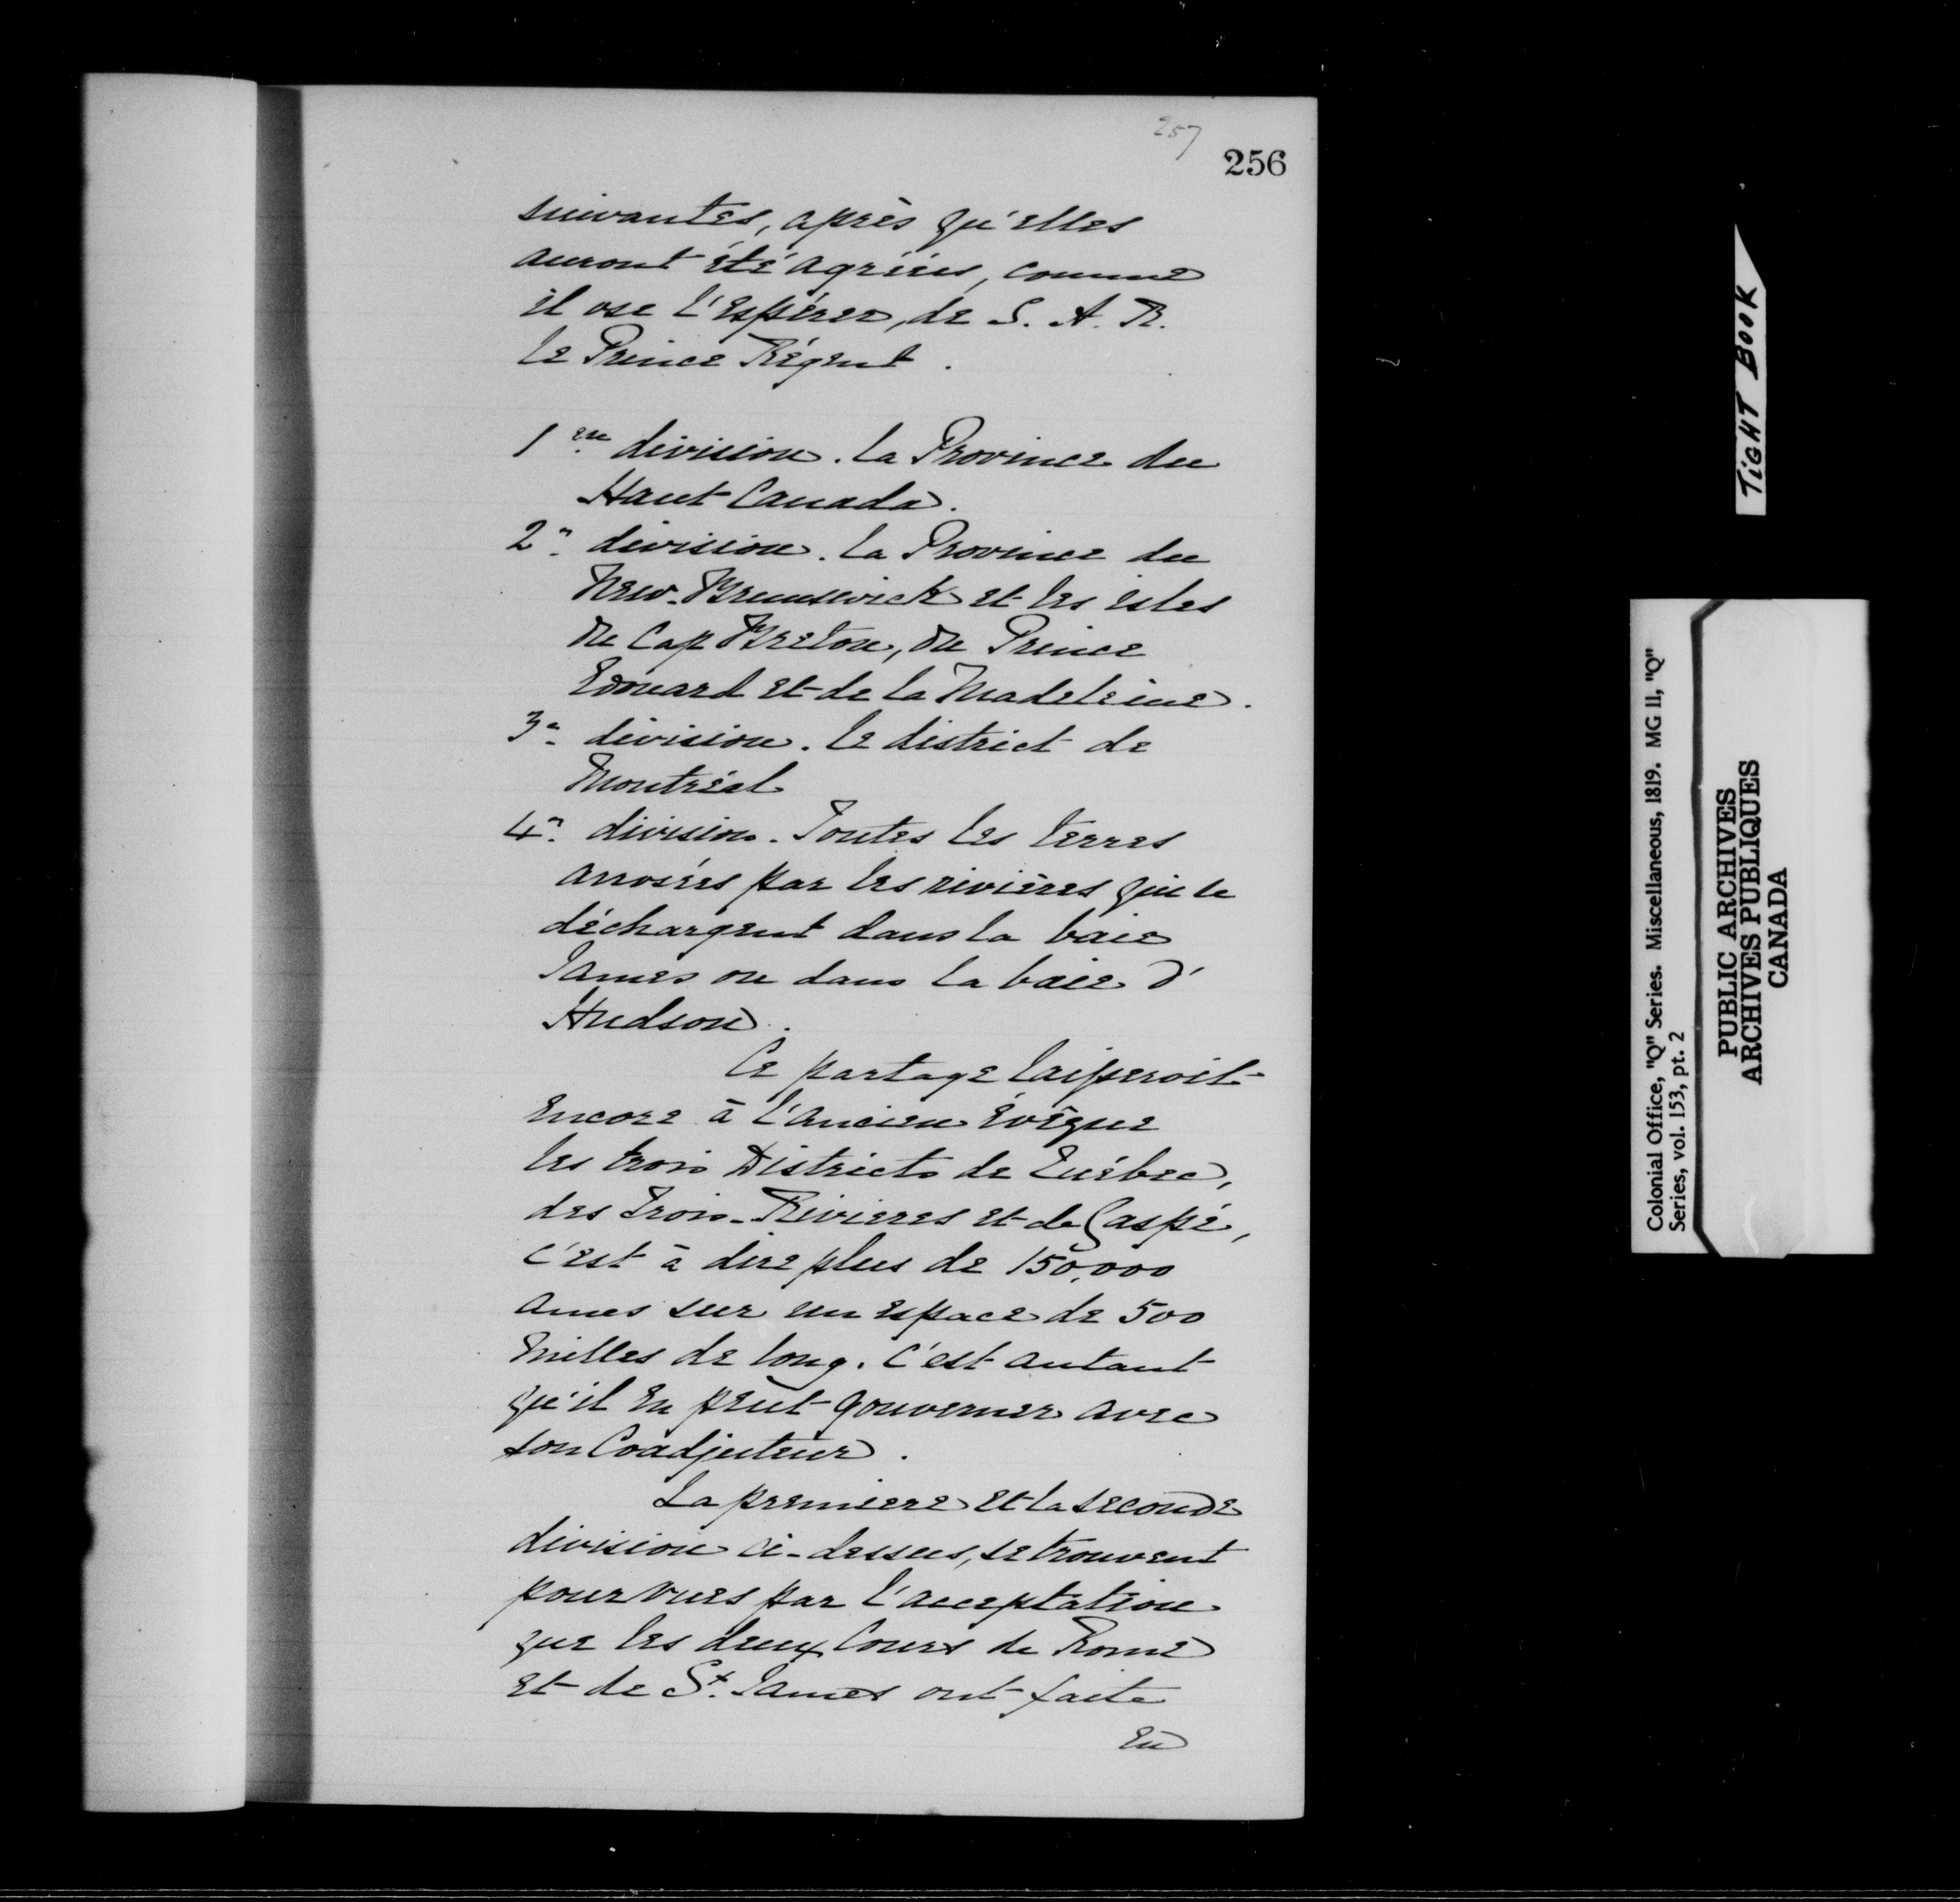 257
256
suivantes, après qu'elles
auront été agréées, comme
il ose l'espérer, de S. A. R.
le Prince Régent.
1ere division. la Province du
Haut Canada.
2e division. la Province du
New-Brunswick et les isles
du Cap Breton, du Prince
Edouard et de la Madeleine.
3e division. le district de
Montréal
4e division. Toutes les terres
arrosées par les rivières qui se
déchargent dans la baie
James ou dans la baie d'
Hudson.
Ce partage laisseroit
encore à l'ancien évêque
les trois Districts de Québec,
des Trois-Rivieres et de Gaspé,
c'est à dire plus de 150,000
ames sur un espace de 500
milles de long. C'est autant
qu'il en peut gouverner avec
son Coadjuteur.
La premiere et la seconde
division ci-dessus, se trouvent
pourvues par l'acceptation
que les deux Cours de Rome
et de St. James ont faite
en
TIGHT BOOK
Colonial Office, "Q" Series. Miscellaneous, 1819. MG 11, "Q"
Series, vol. 153, pt. 2
PUBLIC ARCHIVES
ARCHIVES PUBLIQUES
CANADA